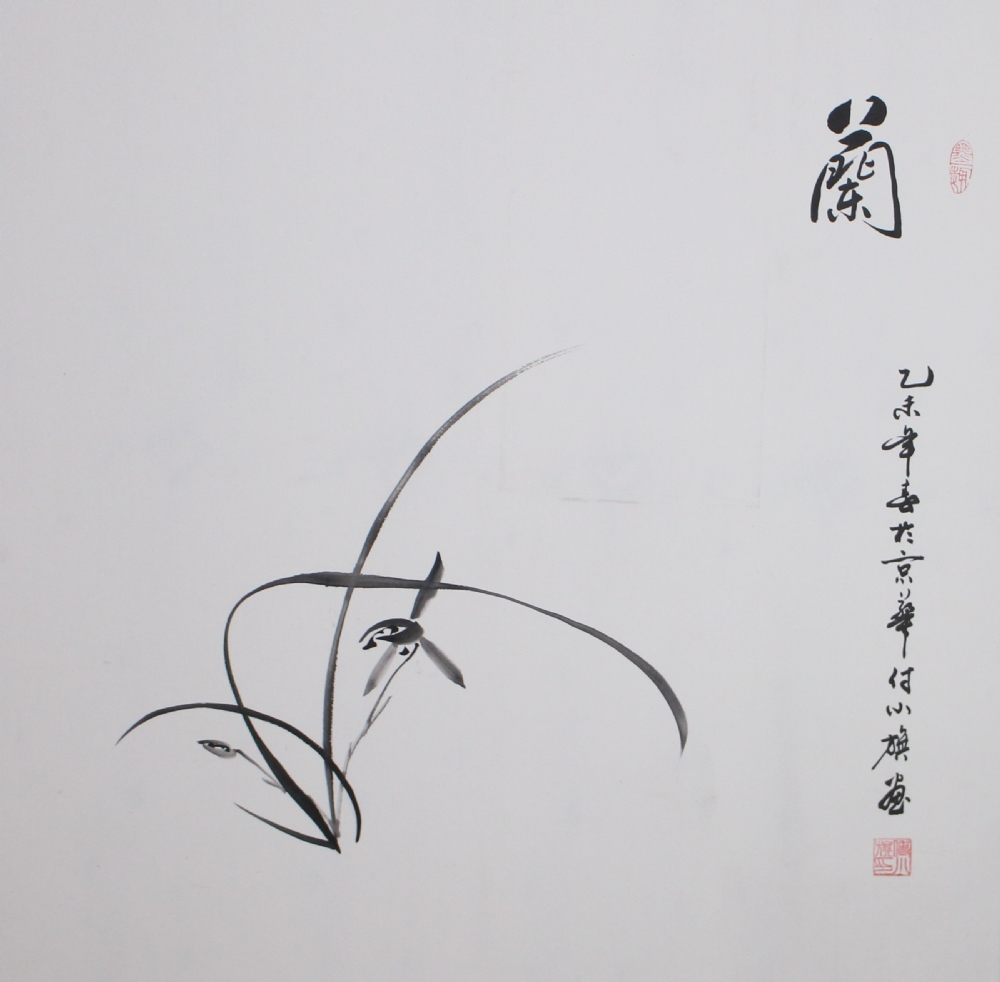 蘭
乙未年春於京華付小旗画